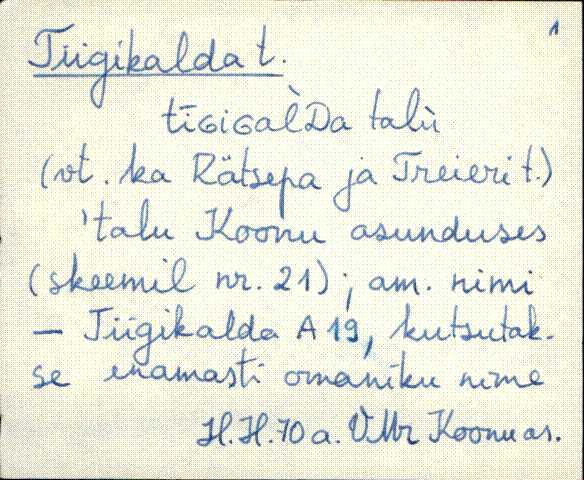 1
Tiigikalda t.
tīGiGal̀Da talù
(vt. ka Rätsepa ja Treieri t.)
'talu Koonu asunduses
(skeemil nr. 21); am. nimi
– Tiigikalda A 19, kutsutak-
se enamasti omaniku nime
H.H. 70 a. VMr Koonu as.